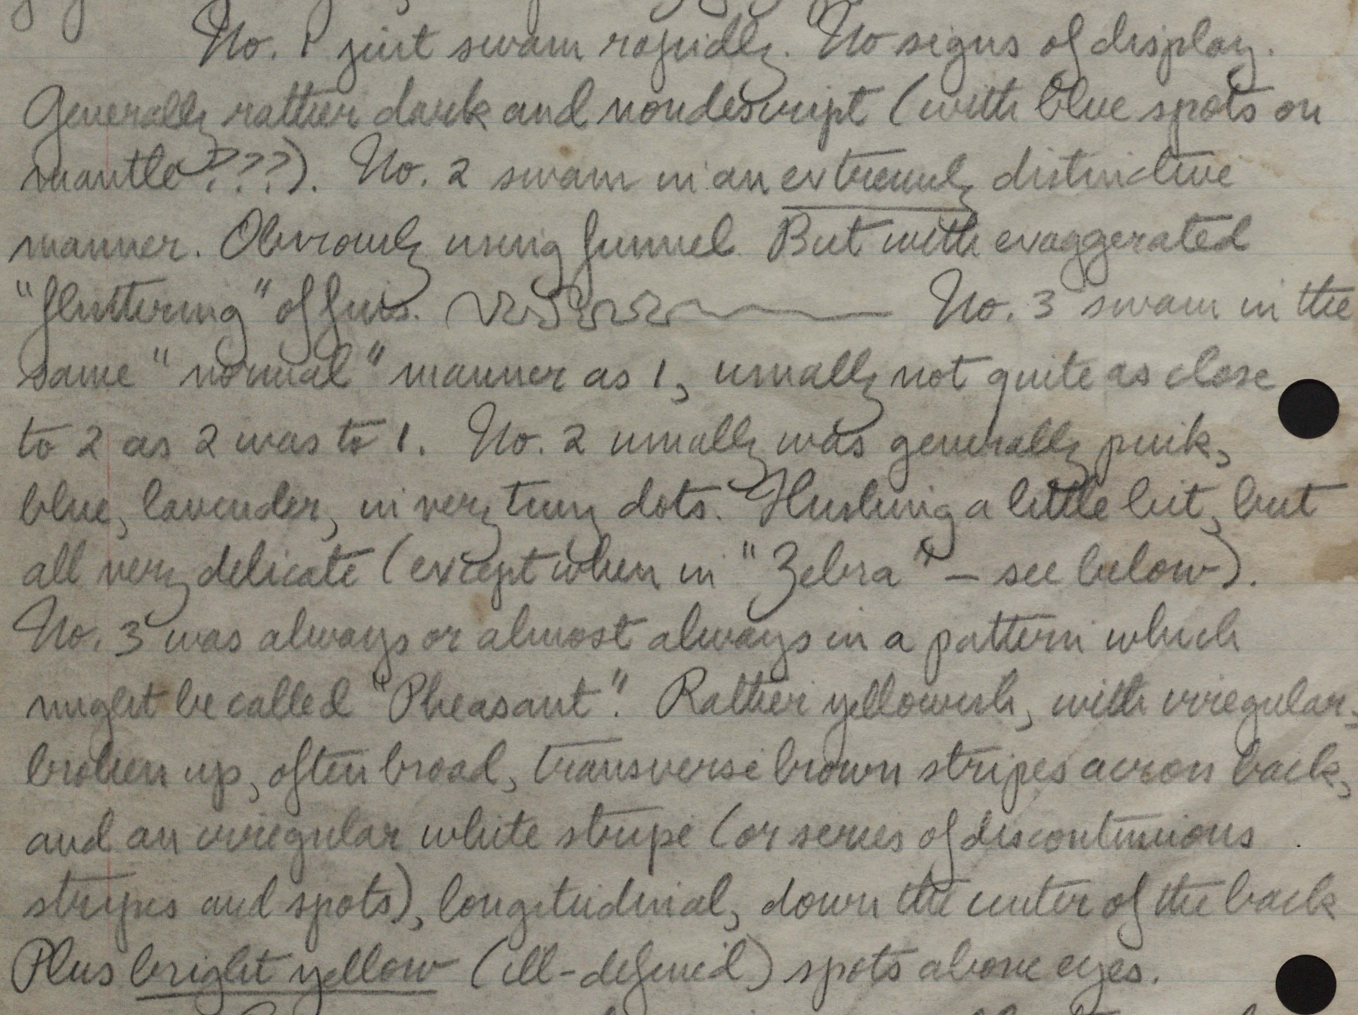 No. 1 just swam rapidly. No signs of display.
Generally rather dark and nondescript (with blue spots on
mantle???). No. 2 swam in an extremely distinctive
manner. Obviously using funnel. But with exaggerated
"fluttering" of fins. No. 3 swam in the
same "normal" manner as 1, usually not quite as close
to 2 as 2 was to 1. No. 2 usually was generally pink,
blue, lavender, in very tiny dots. Flushing a little bit, but
all very delicate (except when in "Zebra" – see below).
No. 3 was always or almost always in a pattern which
might be called "Pheasant". Rather yellowish, with irregular,
broken up, often broad, transverse brown stripes across back,
and an irregular white stripe (or series of discontinuous
stripes and spots), longitudinal, down the center of the back
Plus bright yellow (ill-defined) spots above eyes.